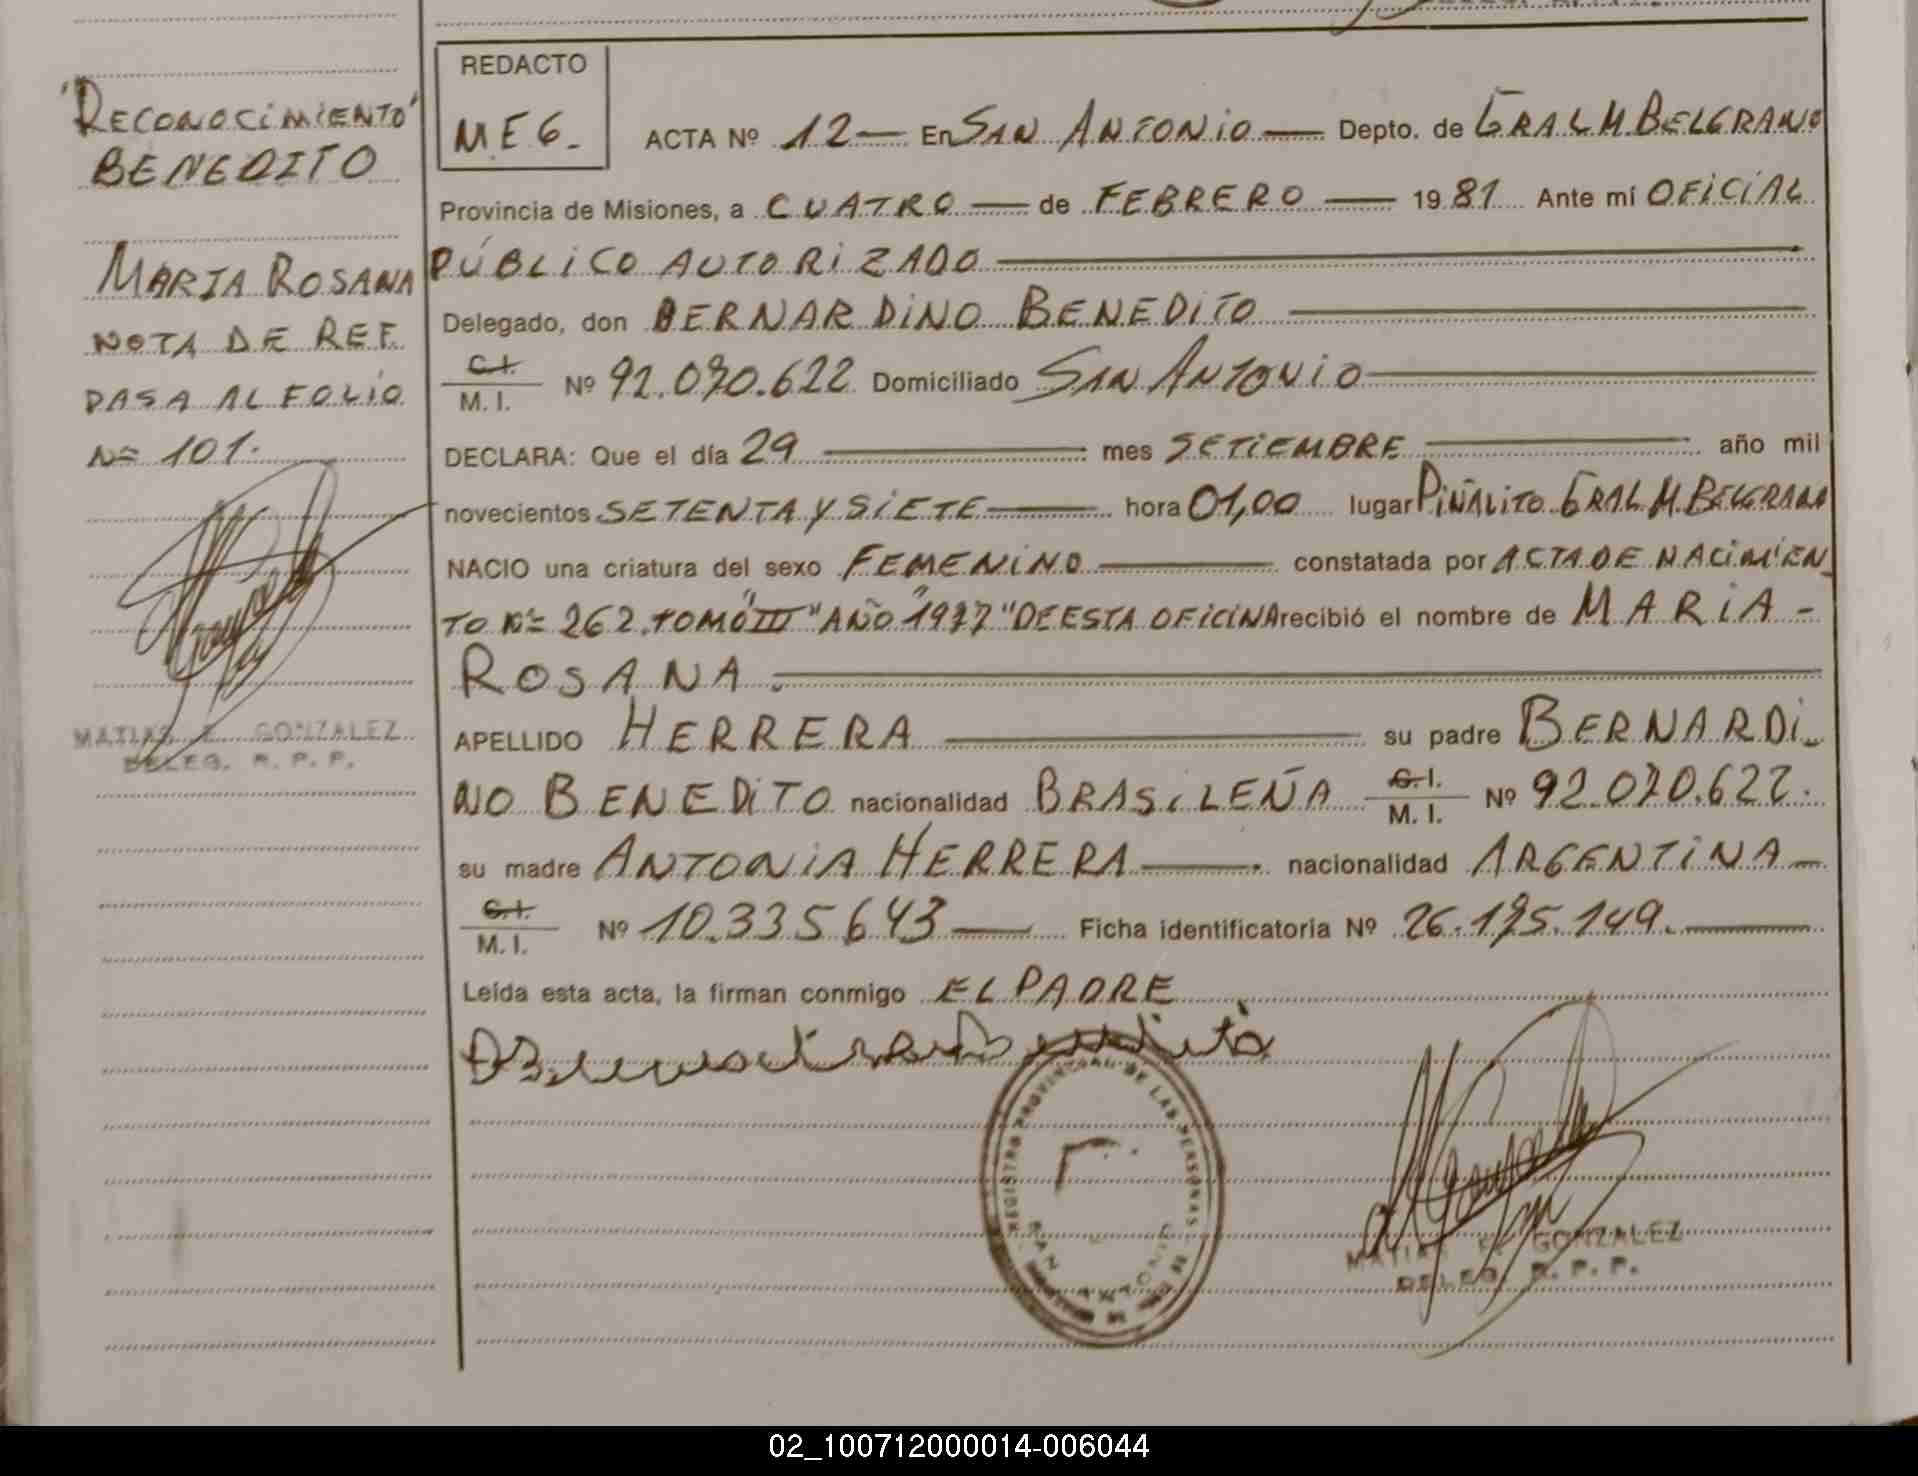 REDACTO
M.E.G.
"RECONOCIMIENTO"
BENEDITO
MARIA ROSANA
NOTA DE REF.
PASA AL FOLIO
Nº 101.
MATIAS E. GONZALEZ
DELEG. R. P. P.
ACTA Nº 12 En SAN ANTONIO Depto. de GRAL M. BELGRANO
Provincia de Misiones, a CUATRO de FEBRERO 1981 Ante mí OFICIAL
PÚBLICO AUTORIZADO
Delegado, don BERNARDINO BENEDITO
C.I. M. I. Nº 92.070.622 Domiciliado SAN ANTONIO
DECLARA: Que el día 29 mes SETIEMBRE año mil
novecientos SETENTA Y SIETE hora 01,00 lugar PIÑALITO GRAL M. BELGRANO
NACIO una criatura del sexo FEMENINO constatada por ACTA DE NACIMIEN_
TO Nº 262 TOMO "III" AÑO "1977" DE ESTA OFICINA recibió el nombre de MARIA -
ROSANA.
APELLIDO HERRERA su padre BERNARDI_
NO BENEDITO nacionalidad BRASILEÑA C.I. M. I. Nº 92.070.622.
su madre ANTONIA HERRERA nacionalidad ARGENTINA
C.I. M. I. Nº 10.335.643 Ficha identificatoria Nº 26.175.149.
Leída esta acta, la firman conmigo EL PADRE
REGISTRO PROVINCIAL DE LAS PERSONAS
SAN ANTONIO
MATIAS E. GONZALEZ
DELEG. R. P. P.
02_100712000014-006044